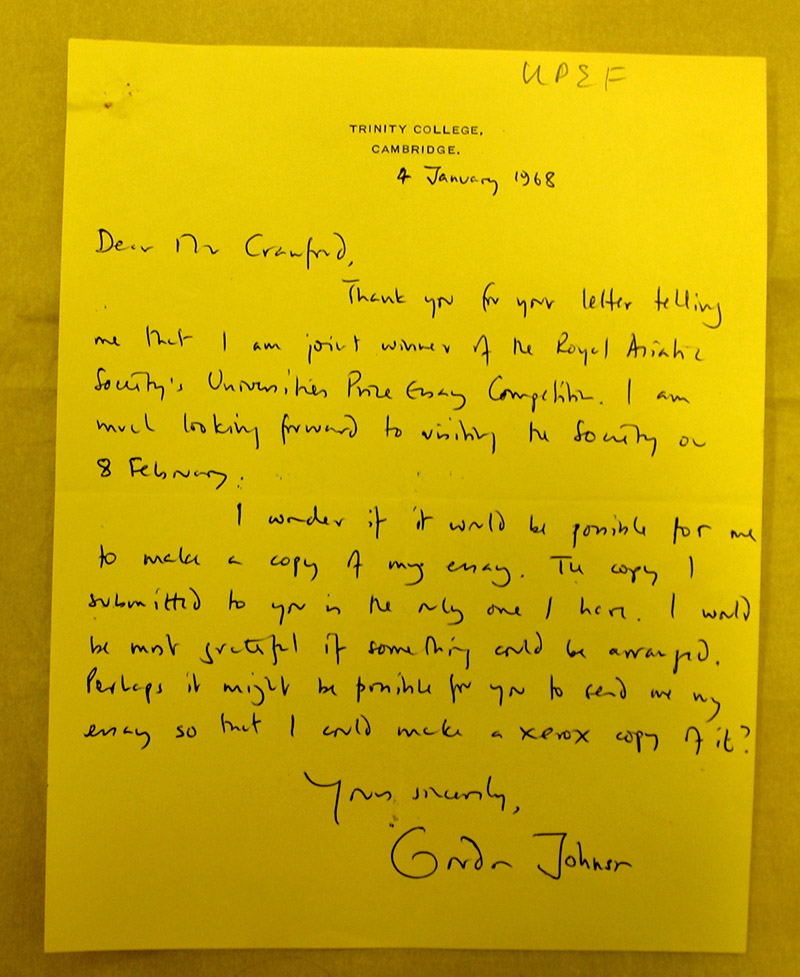 UPEF
TRINITY COLLEGE,
CAMBRIDGE.
4 January 1968
Dear Mr Cranford,
Thank you for your letter telling
me that I am joint winner of the Royal Asiatic
Society's Universities Prize Essay Competition. I am
much looking forward to visiting the Society on
8 February.
I wonder if it would be possible for me
to make a copy of my essay. The copy I
submitted to you is the only one I have. I would
be most grateful if something could be arranged.
Perhaps it might be possible for you to send me my
essay so that I could make a xerox copy of it?
Yours sincerely,
Gordon Johnson